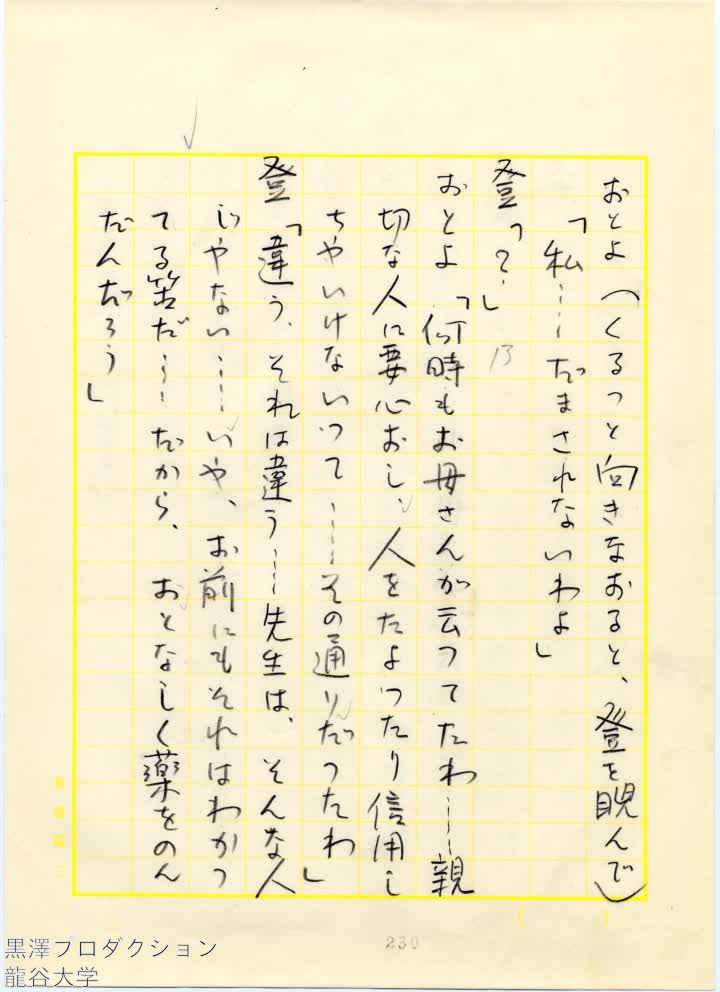 おとよ（くるっと向きなおると、登を睨んで）
「私……だまされないわよ」
登「？」
13
おとよ「何時もお母さんが云つてたわ……親
切な人に要心おし、人をたよつたり信用し
ちやいけないつて……その通りだつたわ」
登「違う、それは違う……先生は、そんな人
じやない……いや、お前にもそれはわかつ
てる筈だ……だから、おとなしく薬をのん
だんだろう」
230
黒澤プロダクション
龍谷大学